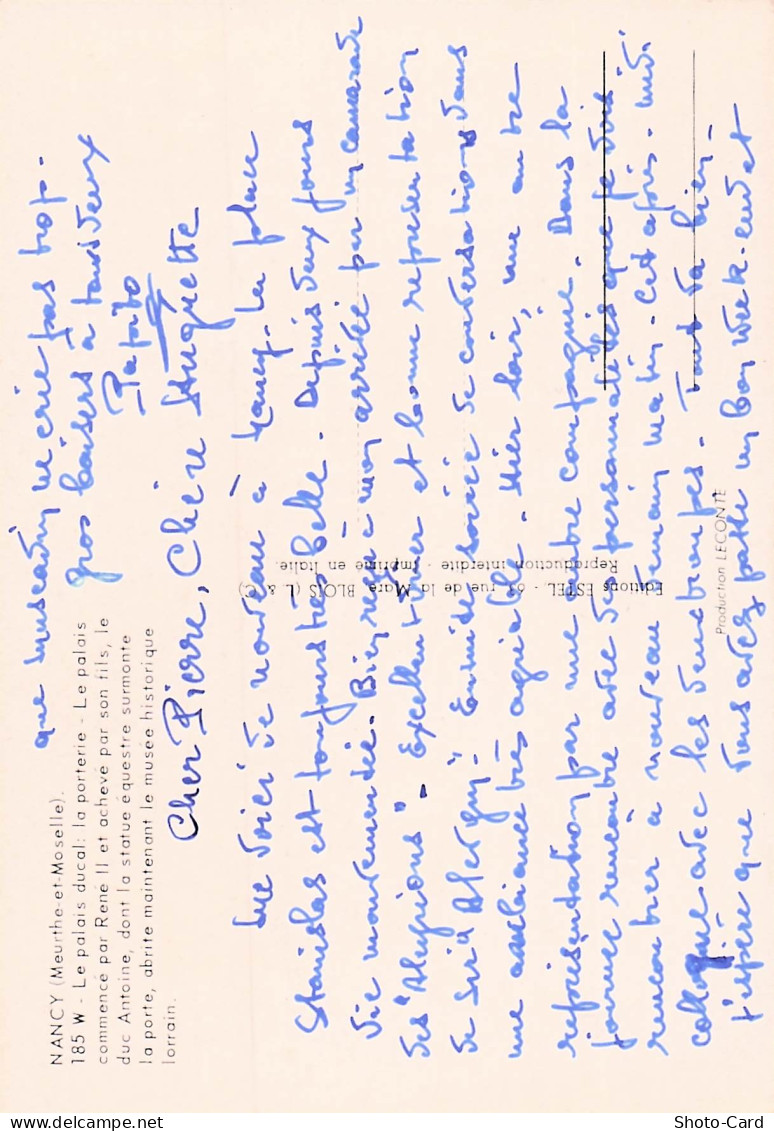 NANCY (Meurthe-et-Moselle).
185 W - Le palais ducal: la porterie - Le palais
commencé par René II et achevé par son fils, le
duc Antoine, dont la statue équestre surmonte
la porte, abrite maintenant le musée historique
lorrain.
Cher Pierre, Chère Huguette
Me voici de nouveau à Nancy. La place
Stanislas est toujours très belle. Depuis deux jours
vie mouvementée. Bien reçu à mon arrivée par un camarade
des "Alusions". Excellent dîner et bonne représentation
de Ensuite soirée de conversations dans
une ambiance très agréable. Hier soir, une autre
représentation par une autre compagnie. Dans la
journée rencontre avec des personnalités que je dois
rencontrer à nouveau demain matin. Cet après-midi
colloque avec les Tout va bien.
J'espère que vous avez passé un bon week-end et
que Muscadin ne crie pas trop.
Gros baisers à tous deux
Papito
Editions ESTEL - 63, rue de la Mare, BLOIS (L. & C.)
Reproduction interdite - Imprimé en Italie.
Production LECONTE
Shoto-Card